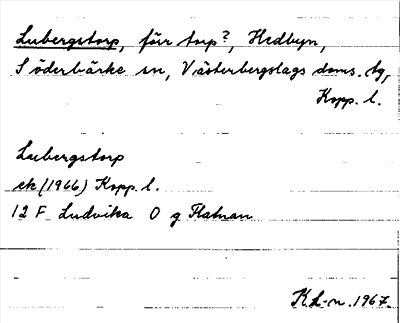 Lubergstorp, förr torp?, Hedbyn,
Söderbärke sn, Västerbergslags doms. bg,
Kopp. l.
Lubergstorp
ek (1966) Kopp. l.
12 F Ludvika O g Flatnan
K L-n. 1967.